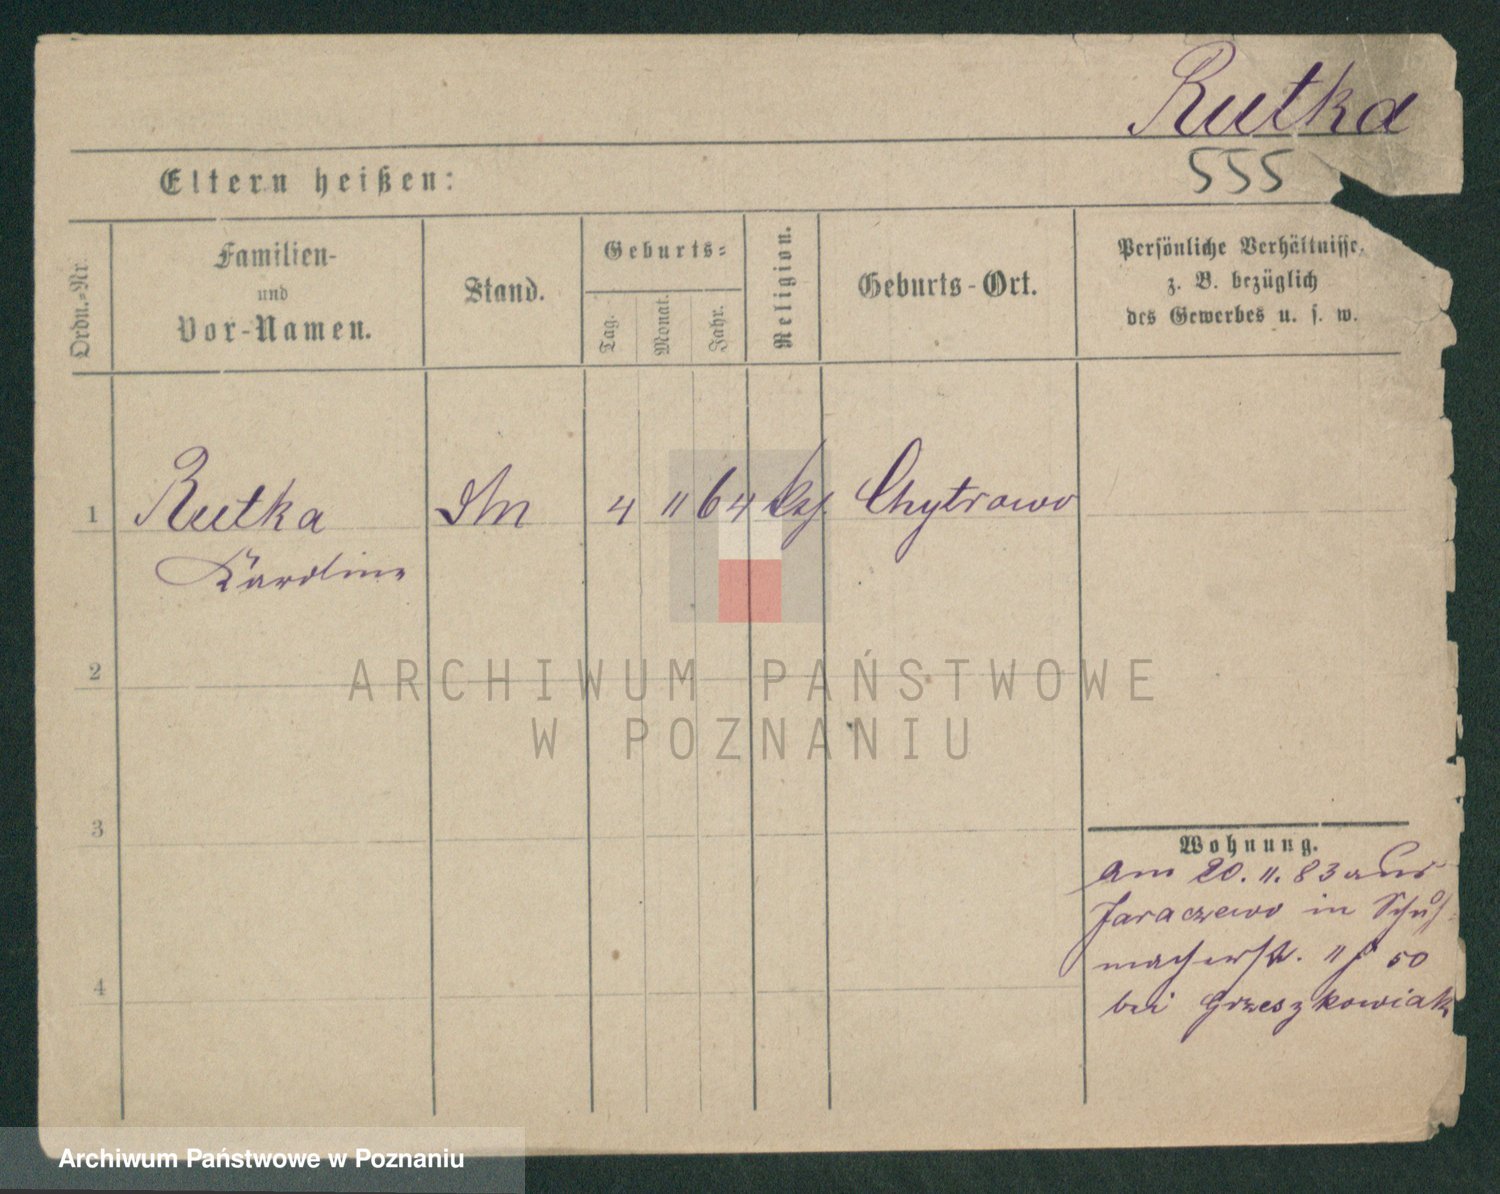 Rutka
555
Eltern heißen:
Ordn.-Nr.
Familien-
und
Vor-Namen.
Stand.
Geburts-
Tag.
Monat.
Jahr.
Religion.
Geburts-Ort.
Persönliche Verhältnisse,
z. B. bezüglich
des Gewerbes u. s. w.
1 Rutka 4 11 64 Chytrowo
Karoline
2
3
4
Wohnung.
am 20. 11. 83 aus
Jaraczewo in Schuh
macherst. 50
bei Grzeszkowiak
ARCHIWUM PAŃSTWOWE
W POZNANIU
Archiwum Państwowe w Poznaniu